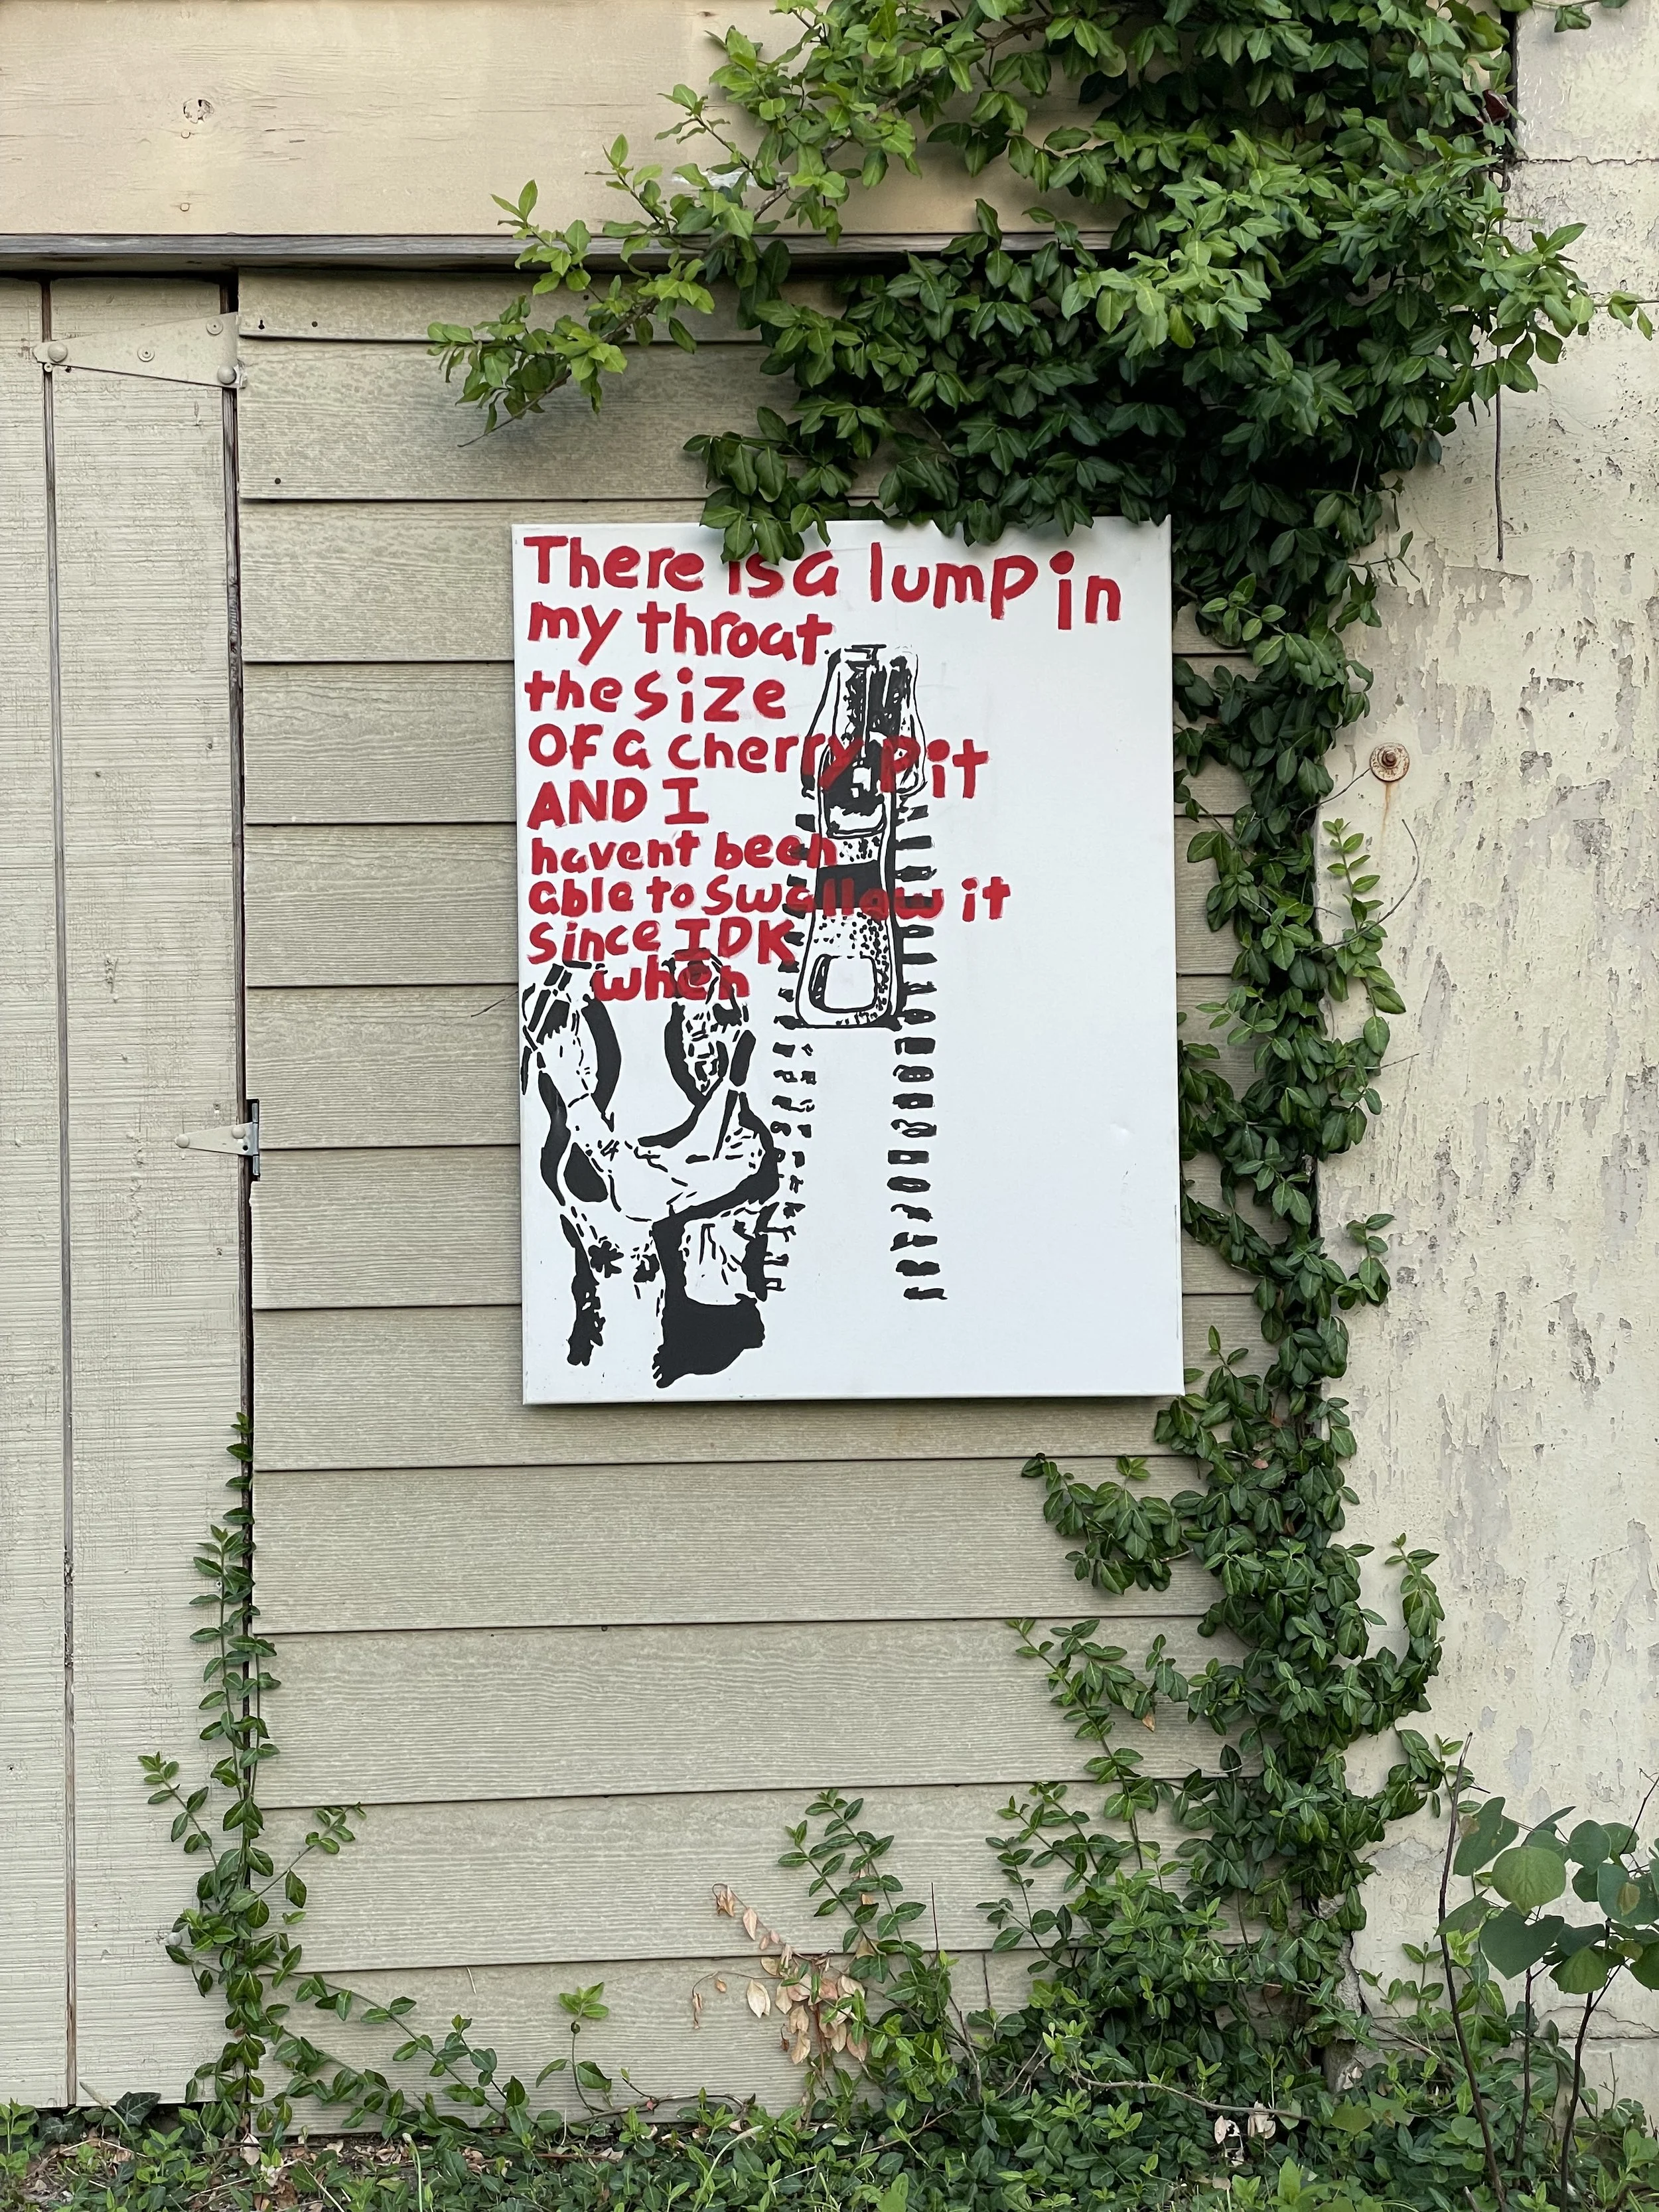 There is a lump in
my throat
the size
OF a cherry pit
AND I
havent been
able to swallow it
since IDK
when